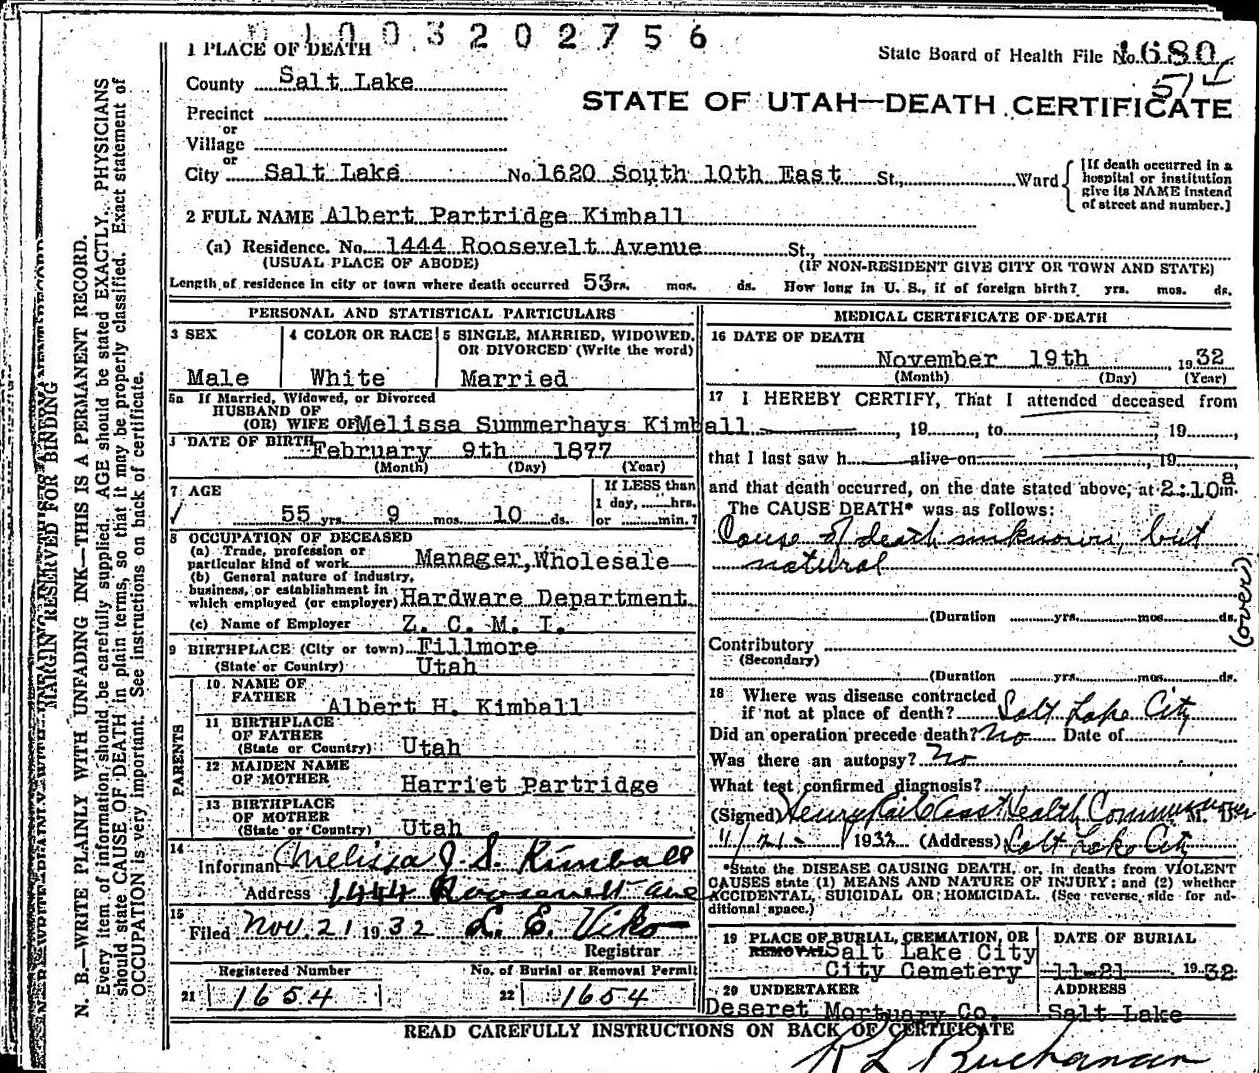 1003202756
1 PLACE OF DEATH
State Board of Health File No. 1680
County Salt Lake
STATE OF UTAH—DEATH CERTIFICATE
Precinct
or
Village
or
City Salt Lake No. 1620 South 10th East St., Ward
[If death occurred in a
hospital or institution
give its NAME instead
of street and number.]
2 FULL NAME Albert Partridge Kimball
(a) Residence. No. 1444 Roosevelt Avenue St.,
(USUAL PLACE OF ABODE) (IF NON-RESIDENT GIVE CITY OR TOWN AND STATE)
Length of residence in city or town where death occurred 53 rs. mos. ds. How long in U. S., if of foreign birth? yrs. mos. ds.
PERSONAL AND STATISTICAL PARTICULARS
3 SEX
Male
4 COLOR OR RACE
White
5 SINGLE, MARRIED, WIDOWED,
OR DIVORCED (Write the word)
Married
5a If Married, Widowed, or Divorced
HUSBAND OF
(OR) WIFE OF Melissa Summerhays Kimball
DATE OF BIRTH February 9th 1877
(Month) (Day) (Year)
7 AGE
55 yrs. 9 mos. 10 ds.
If LESS than
1 day, hrs.
or min.?
8 OCCUPATION OF DECEASED
(a) Trade, profession or
particular kind of work Manager, Wholesale
(b) General nature of Industry,
business, or establishment in
which employed (or employer) Hardware Department
(c) Name of Employer Z. C. M. I.
9 BIRTHPLACE (City or town) Fillmore
(State or Country) Utah
PARENTS
10 NAME OF
FATHER Albert H. Kimball
11 BIRTHPLACE
OF FATHER
(State or Country) Utah
12 MAIDEN NAME
OF MOTHER Harriet Partridge
13 BIRTHPLACE
OF MOTHER
(State or Country) Utah
14
Informant Melissa J. S. Kimball
Address 1444 Roosevelt ave
15
Filed Nov. 21 1932 L. E. Viko
Registrar
Registered Number
21 1654
No. of Burial or Removal Permit
22 1654
MEDICAL CERTIFICATE OF DEATH
16 DATE OF DEATH
November 19th, 1932
(Month) (Day) (Year)
17 I HEREBY CERTIFY, That I attended deceased from
, 19 , to , 19 ,
that I last saw h alive on , 19
and that death occurred, on the date stated above, at 2:10 a m.
The CAUSE DEATH* was as follows:
Cause of death unknown, but
natural
(over)
(Duration yrs. mos. ds.
Contributory
(Secondary)
(Duration yrs. mos. ds.
18 Where was disease contracted
if not at place of death? Salt Lake City
Did an operation precede death? No Date of
Was there an autopsy? No
What test confirmed diagnosis?
(Signed) Health Commissioner M. D.
11/21 1932 (Address) Salt Lake City
*State the DISEASE CAUSING DEATH, or, in deaths from VIOLENT
CAUSES state (1) MEANS AND NATURE OF INJURY; and (2) whether
ACCIDENTAL, SUICIDAL OR HOMICIDAL. (See reverse side for ad-
ditional space.)
19 PLACE OF BURIAL, CREMATION, OR
REMOVAL Salt Lake City
City Cemetery
DATE OF BURIAL
11-21 1932
20 UNDERTAKER
Deseret Mortuary Co.
ADDRESS
Salt Lake
READ CAREFULLY INSTRUCTIONS ON BACK OF CERTIFICATE
R L Buchanan
MARGIN RESERVED FOR BINDING
N. B.—WRITE PLAINLY WITH UNFADING INK—THIS IS A PERMANENT RECORD.
Every item of information should be carefully supplied. AGE should be stated EXACTLY. PHYSICIANS
should state CAUSE OF DEATH in plain terms, so that it may be properly classified. Exact statement of
OCCUPATION is very important. See instructions on back of certificate.